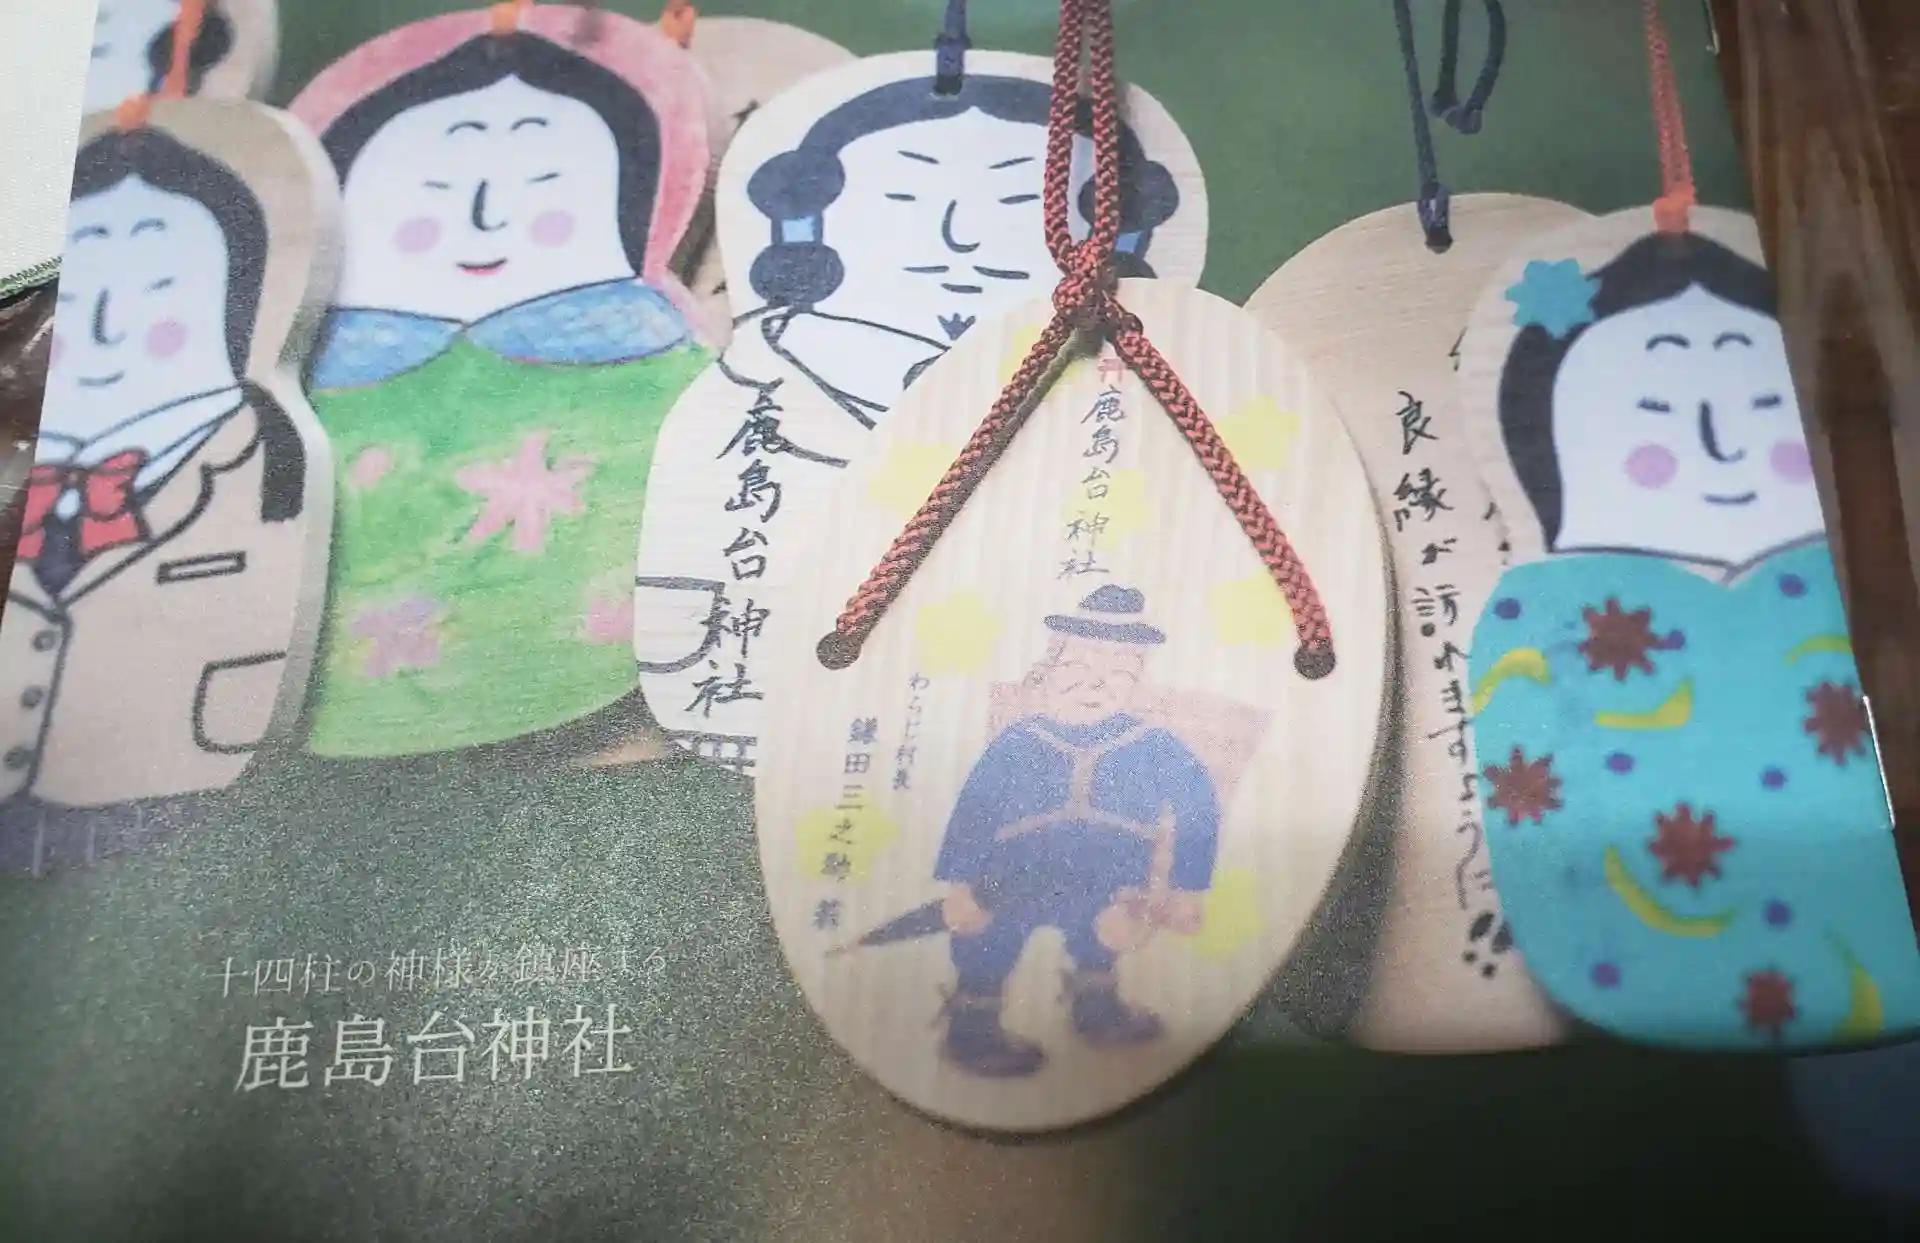 鹿島台神社
鹿島台神社
わらじ村長
鎌田三之助
良縁が訪れますように
十四柱の神様が鎮座する
鹿島台神社